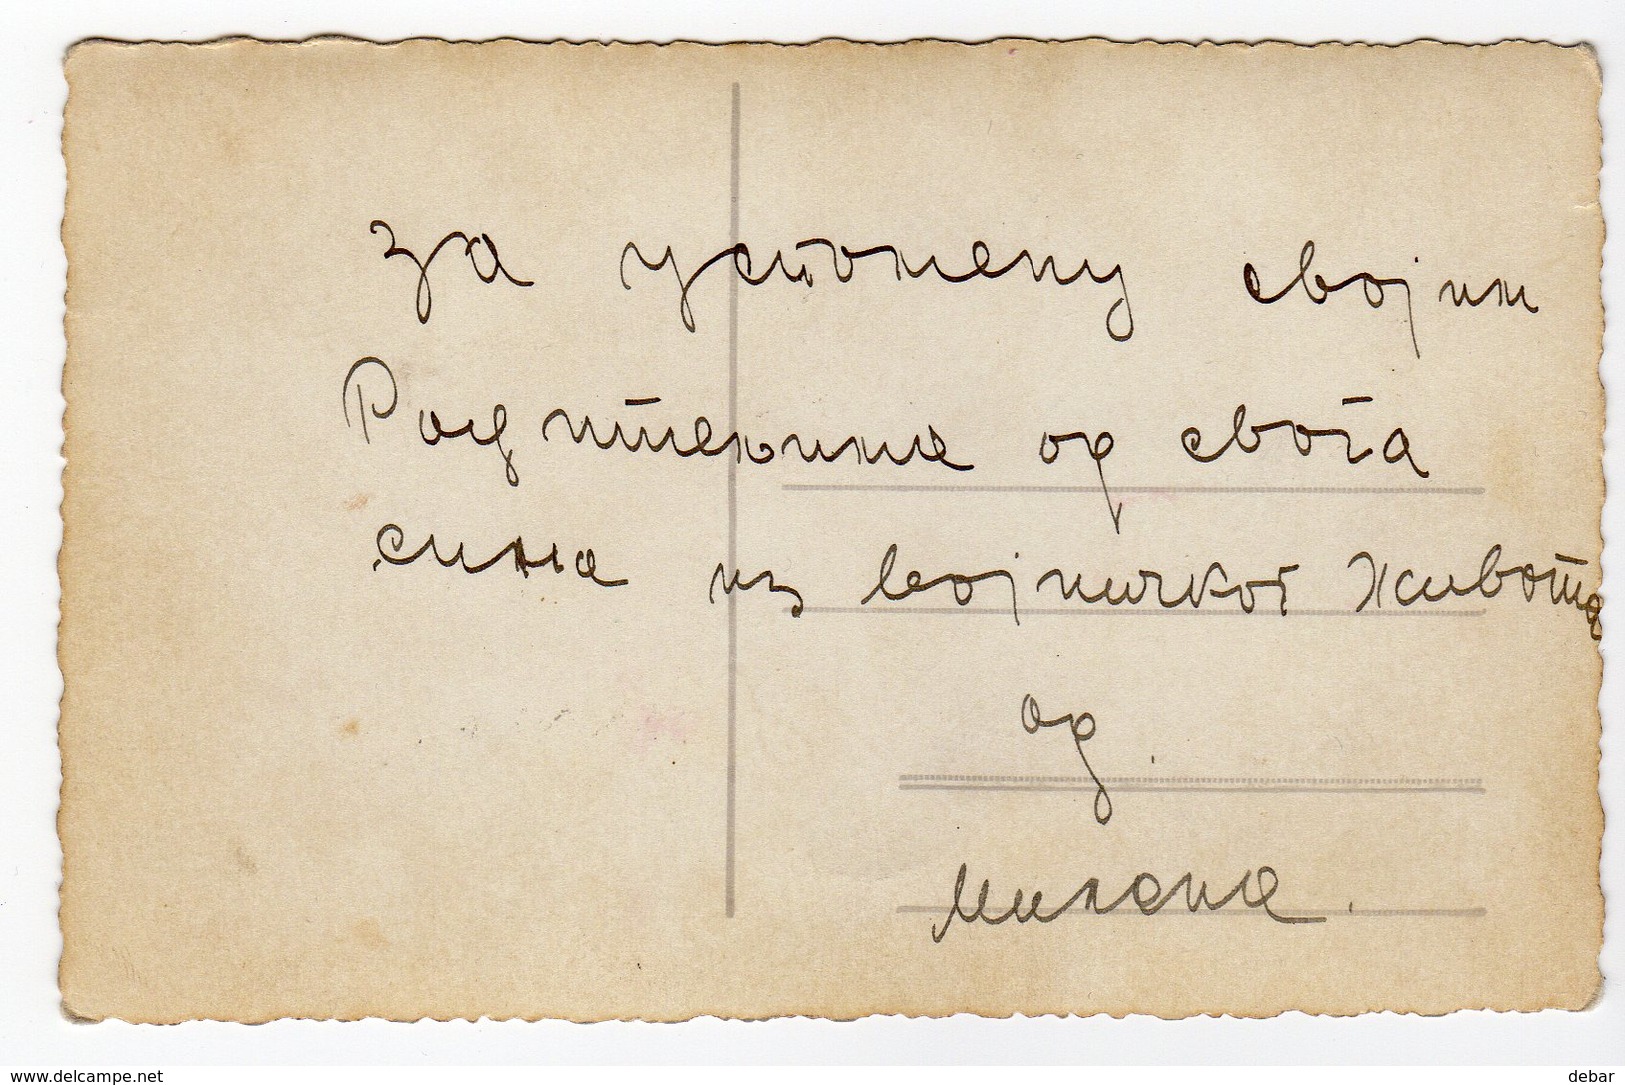 за успомену својим
Родитељима од свога
сина из војничког живота
од
Милана.
www.delcampe.net
debar